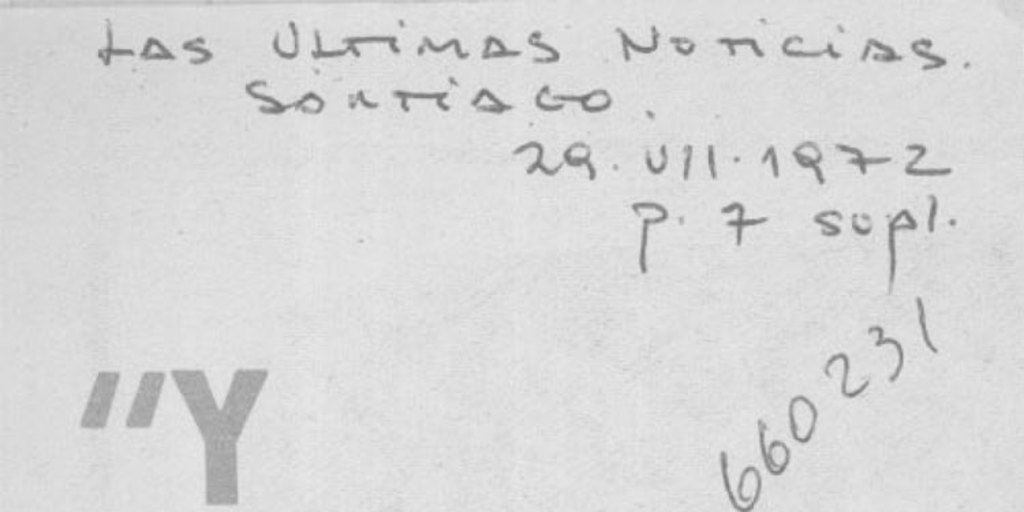 LAS ULTIMAS NOTICIAS.
SANTIAGO.
29.VII.1972
p. 7 supl.
660231
"Y